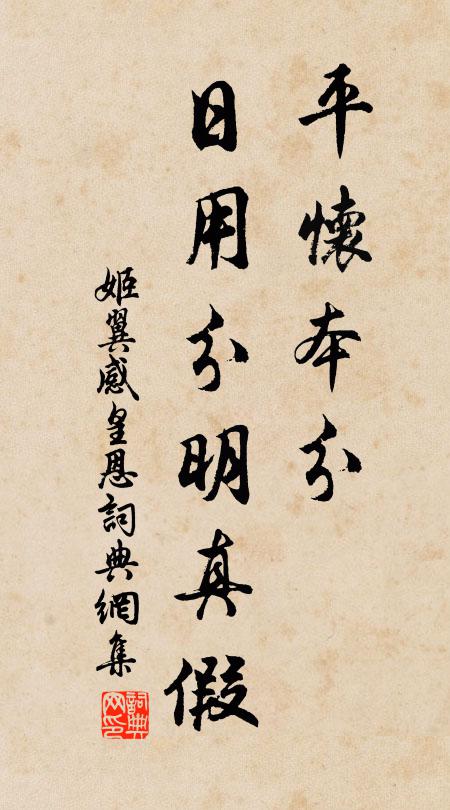 平懷本分
日用分明真假
姬翼感皇恩詞典網集
詞典網印